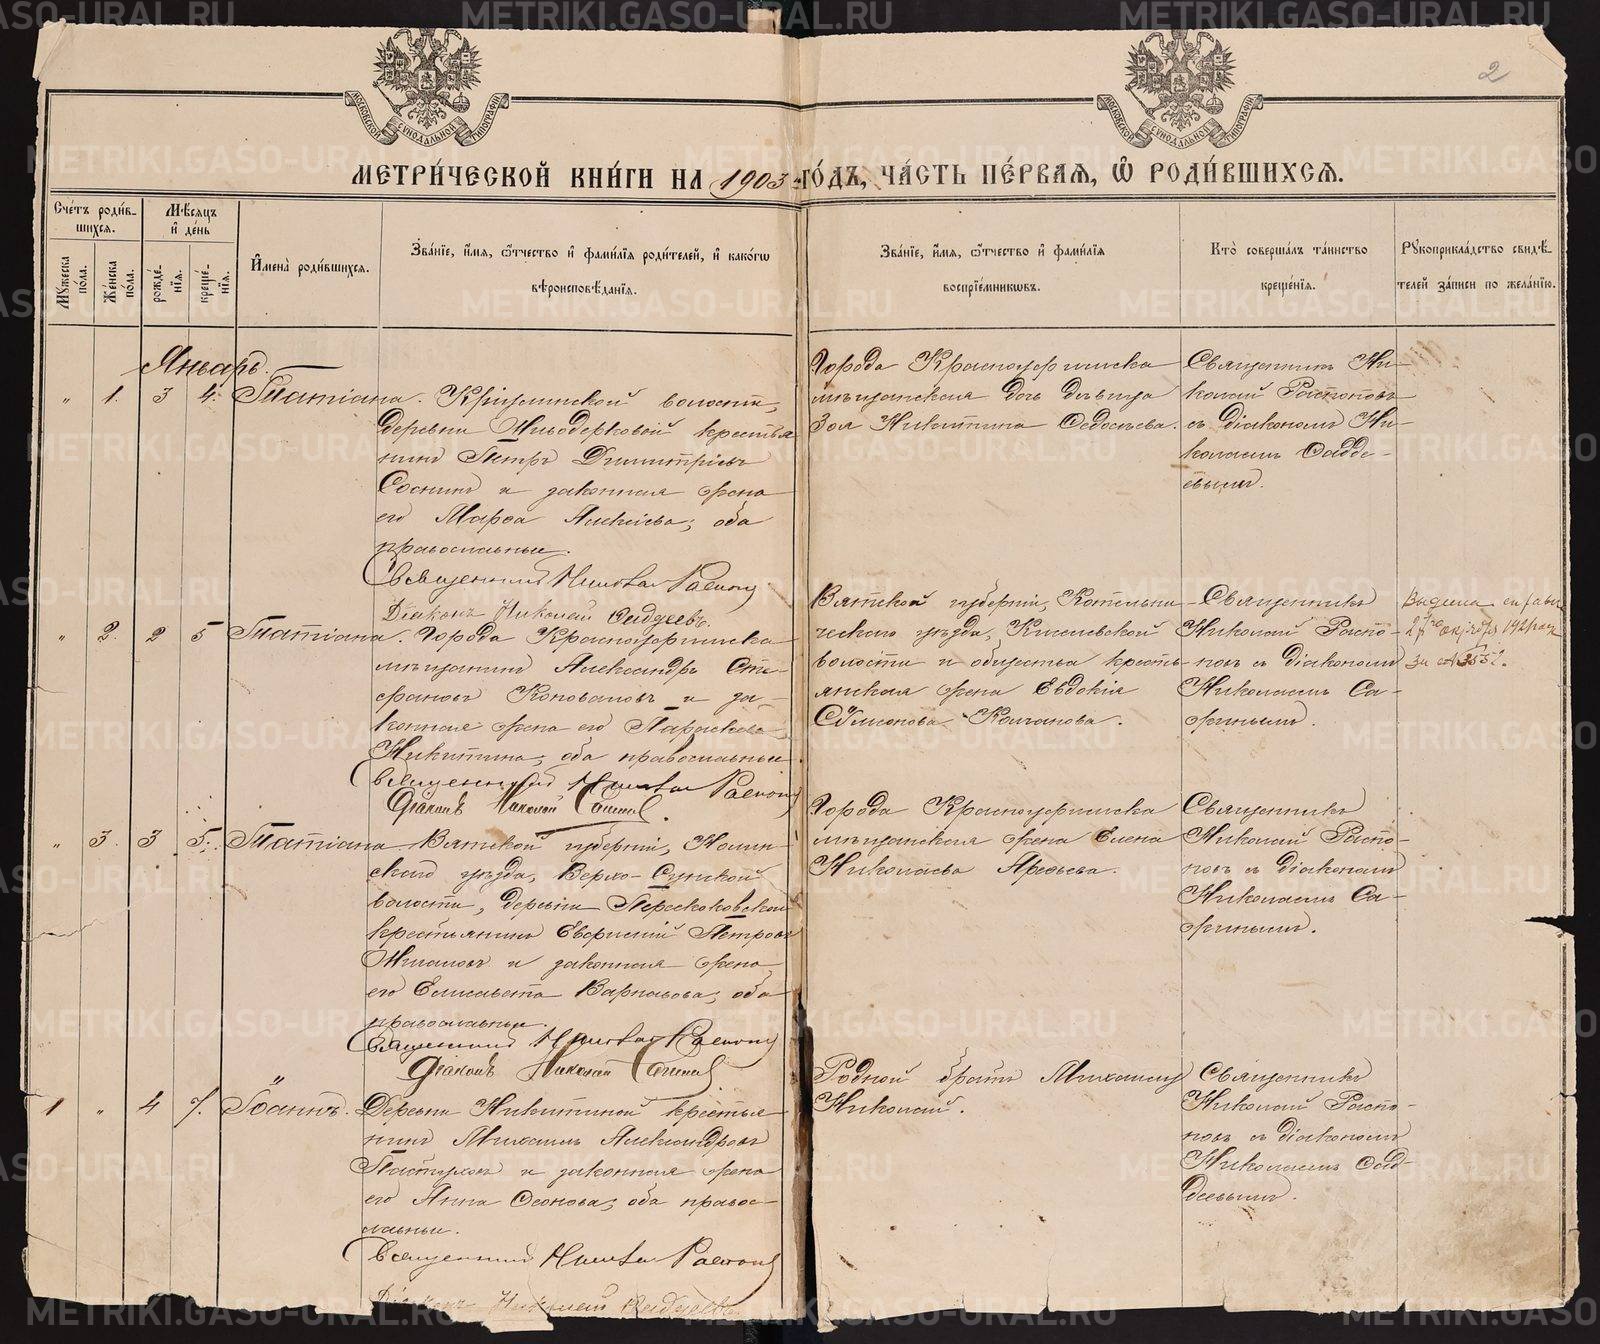 2
МОСКОВСКОЙ СѴНОДАЛЬНОЙ ТИПОГРАФІИ
МОСКОВСКОЙ СѴНОДАЛЬНОЙ ТИПОГРАФІИ
МЕТРИ́ЧЕСКОЙ КНИ́ГИ НА 1903 ГО́ДЪ, ЧА́СТЬ ПЕ́РВАѦ, Ѽ РОДИ́ВШИХСѦ.
Сче́тъ роди́в-
шихсѧ.
Мѣ́сѧцъ
и҆ де́нь
Мꙋ́жеска по́ла.
Же́нска по́ла.
рожде́-нїѧ.
креще́-нїѧ.
И҆мена̀ роди́вшихсѧ.
Зва́нїе, и҆́мѧ, ѻ҆́тчество и҆ фами́лїѧ роди́телей, и҆ како́гѡ
вѣроисповѣ́данїѧ.
Зва́нїе, и҆́мѧ, ѻ҆́тчество и҆ фами́лїѧ
воспрїе́мникѡвъ.
Кто̀ соверша́лъ та́инство
креще́нїѧ.
Рꙋкоприкла́дство свидѣ́-
телей за́писи по жела́нїю.
Январь.
„ 1. 3 4. Татіана. волости,
деревни крестья
нинъ Петръ Димитріевъ
Соснинъ и законная жена
его Марѳа Алексіева; оба
православные.
Священникъ Николай Распоповъ
Діаконъ Николай
Города Красноуфимска
мѣщанская дочь дѣвица
Зоя Никитина Ѳедосѣева.
Священникъ Ни-
колай Распоповъ
съ діакономъ Ни-
колаемъ
евымъ.
„ 2. 2 5 Татіана. Города Красноуфимска
мѣщанинъ Александръ Сте-
фановъ Коноваловъ и за-
конная жена его Параскева
Никитина, оба православные
Священникъ Николай Распоповъ
Діаконъ Николай
Вятской губерніи, Котельни-
ческаго уѣзда, Киселевской
волости и общества кресть-
янская жена Евдокія
Сѵмеонова Колчанова.
Священникъ
Николай Распо-
повъ съ діакономъ
Николаемъ Са-
жинымъ.
Выдана
за №
„ 3. 3 5. Татіана Вятской губерніи, Нолин-
скаго уѣзда, Верхо-Сунской
волости, деревни Перескоковской
крестьянинъ Евгеній Петровъ
и законная жена
его Елисавета Варнавова; оба
православные.
Священникъ Николай Распоповъ
Діаконъ Николай
Города Красноуфимска
мѣщанская жена Елена
Николаева Арефьева.
Священникъ
Николай Распо-
повъ съ діакономъ
Николаемъ Са-
жинымъ.
1 „ 4 7. Іоаннъ. Деревни Никитиной крестья
нинъ Михаилъ Александровъ
Пастуховъ и законная жена
его Анна; оба правос-
лавные.
Священникъ Николай Распоповъ
Діаконъ Николай
Родной братъ Михаилу
Николай.
Священникъ
Николай Распо-
повъ съ діакономъ
Николаемъ
деевымъ.